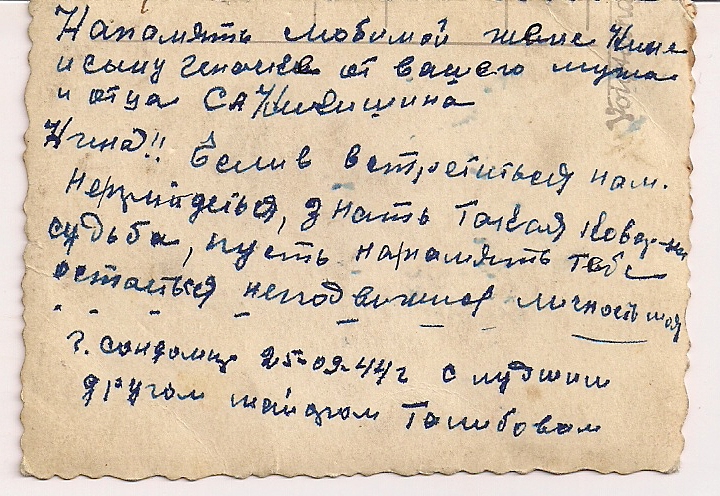 Напомять любимой жене Нине
и сыну Геночке от вашего мужа
и отца СА Никишина
Нина!! Если в встретиться нам.
непрйдеться, знать такая ковар-ная
судьба, пусть напомять тебе
остаться неподвижная личность моя
г. Сандомир 25-09-44г с лудшим
другом майором Талибовам